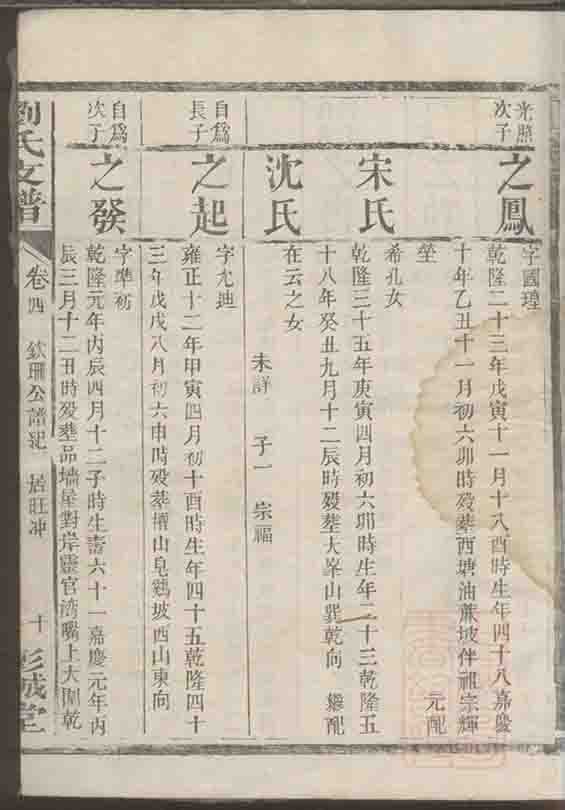 光照
次子
之鳳
字國瑝
乾隆二十三年戊寅十一月十八酉時生年四十八嘉慶
十年乙丑十一月初六卯時歿葬西塘油蔴坡伴祖宗輝
塋 元配
宋氏
希孔女
乾隆三十五年庚寅四月初六卯時生年二十三乾隆五
十八年癸丑九月十二辰時歿葬大峯山巽乾向 繼配
沈氏
在云之女
未詳 子一 宗福
自為
長子
之起
字尤迪
雍正十二年甲寅四月初十酉時生年四十五乾隆四十
三年戊戌八月初六申時歿葬檀山皂鷄坡西山東向
自為
次子
之發
字準初
乾隆元年丙辰四月十二子時生壽六十一嘉慶元年丙
辰三月十二丑時歿葬品墻屋對岸靈官湾嘴上大圍乾
劉氏支譜
卷四 欽珊公譜記 居旺冲 十
彭城堂